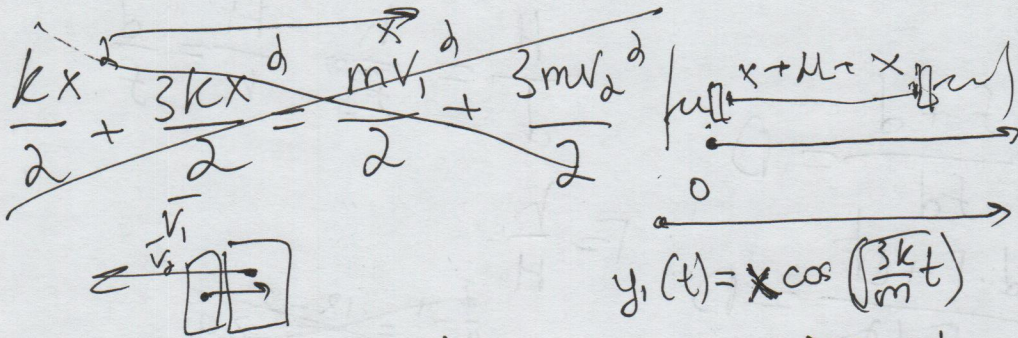 x
kx²/2 + 3kx²/2 = mv₁²/2 + 3mv₂²/2
x + μ + x
0
v̅₁
v̅₂
y₁(t) = x cos(√(3k/m) t)